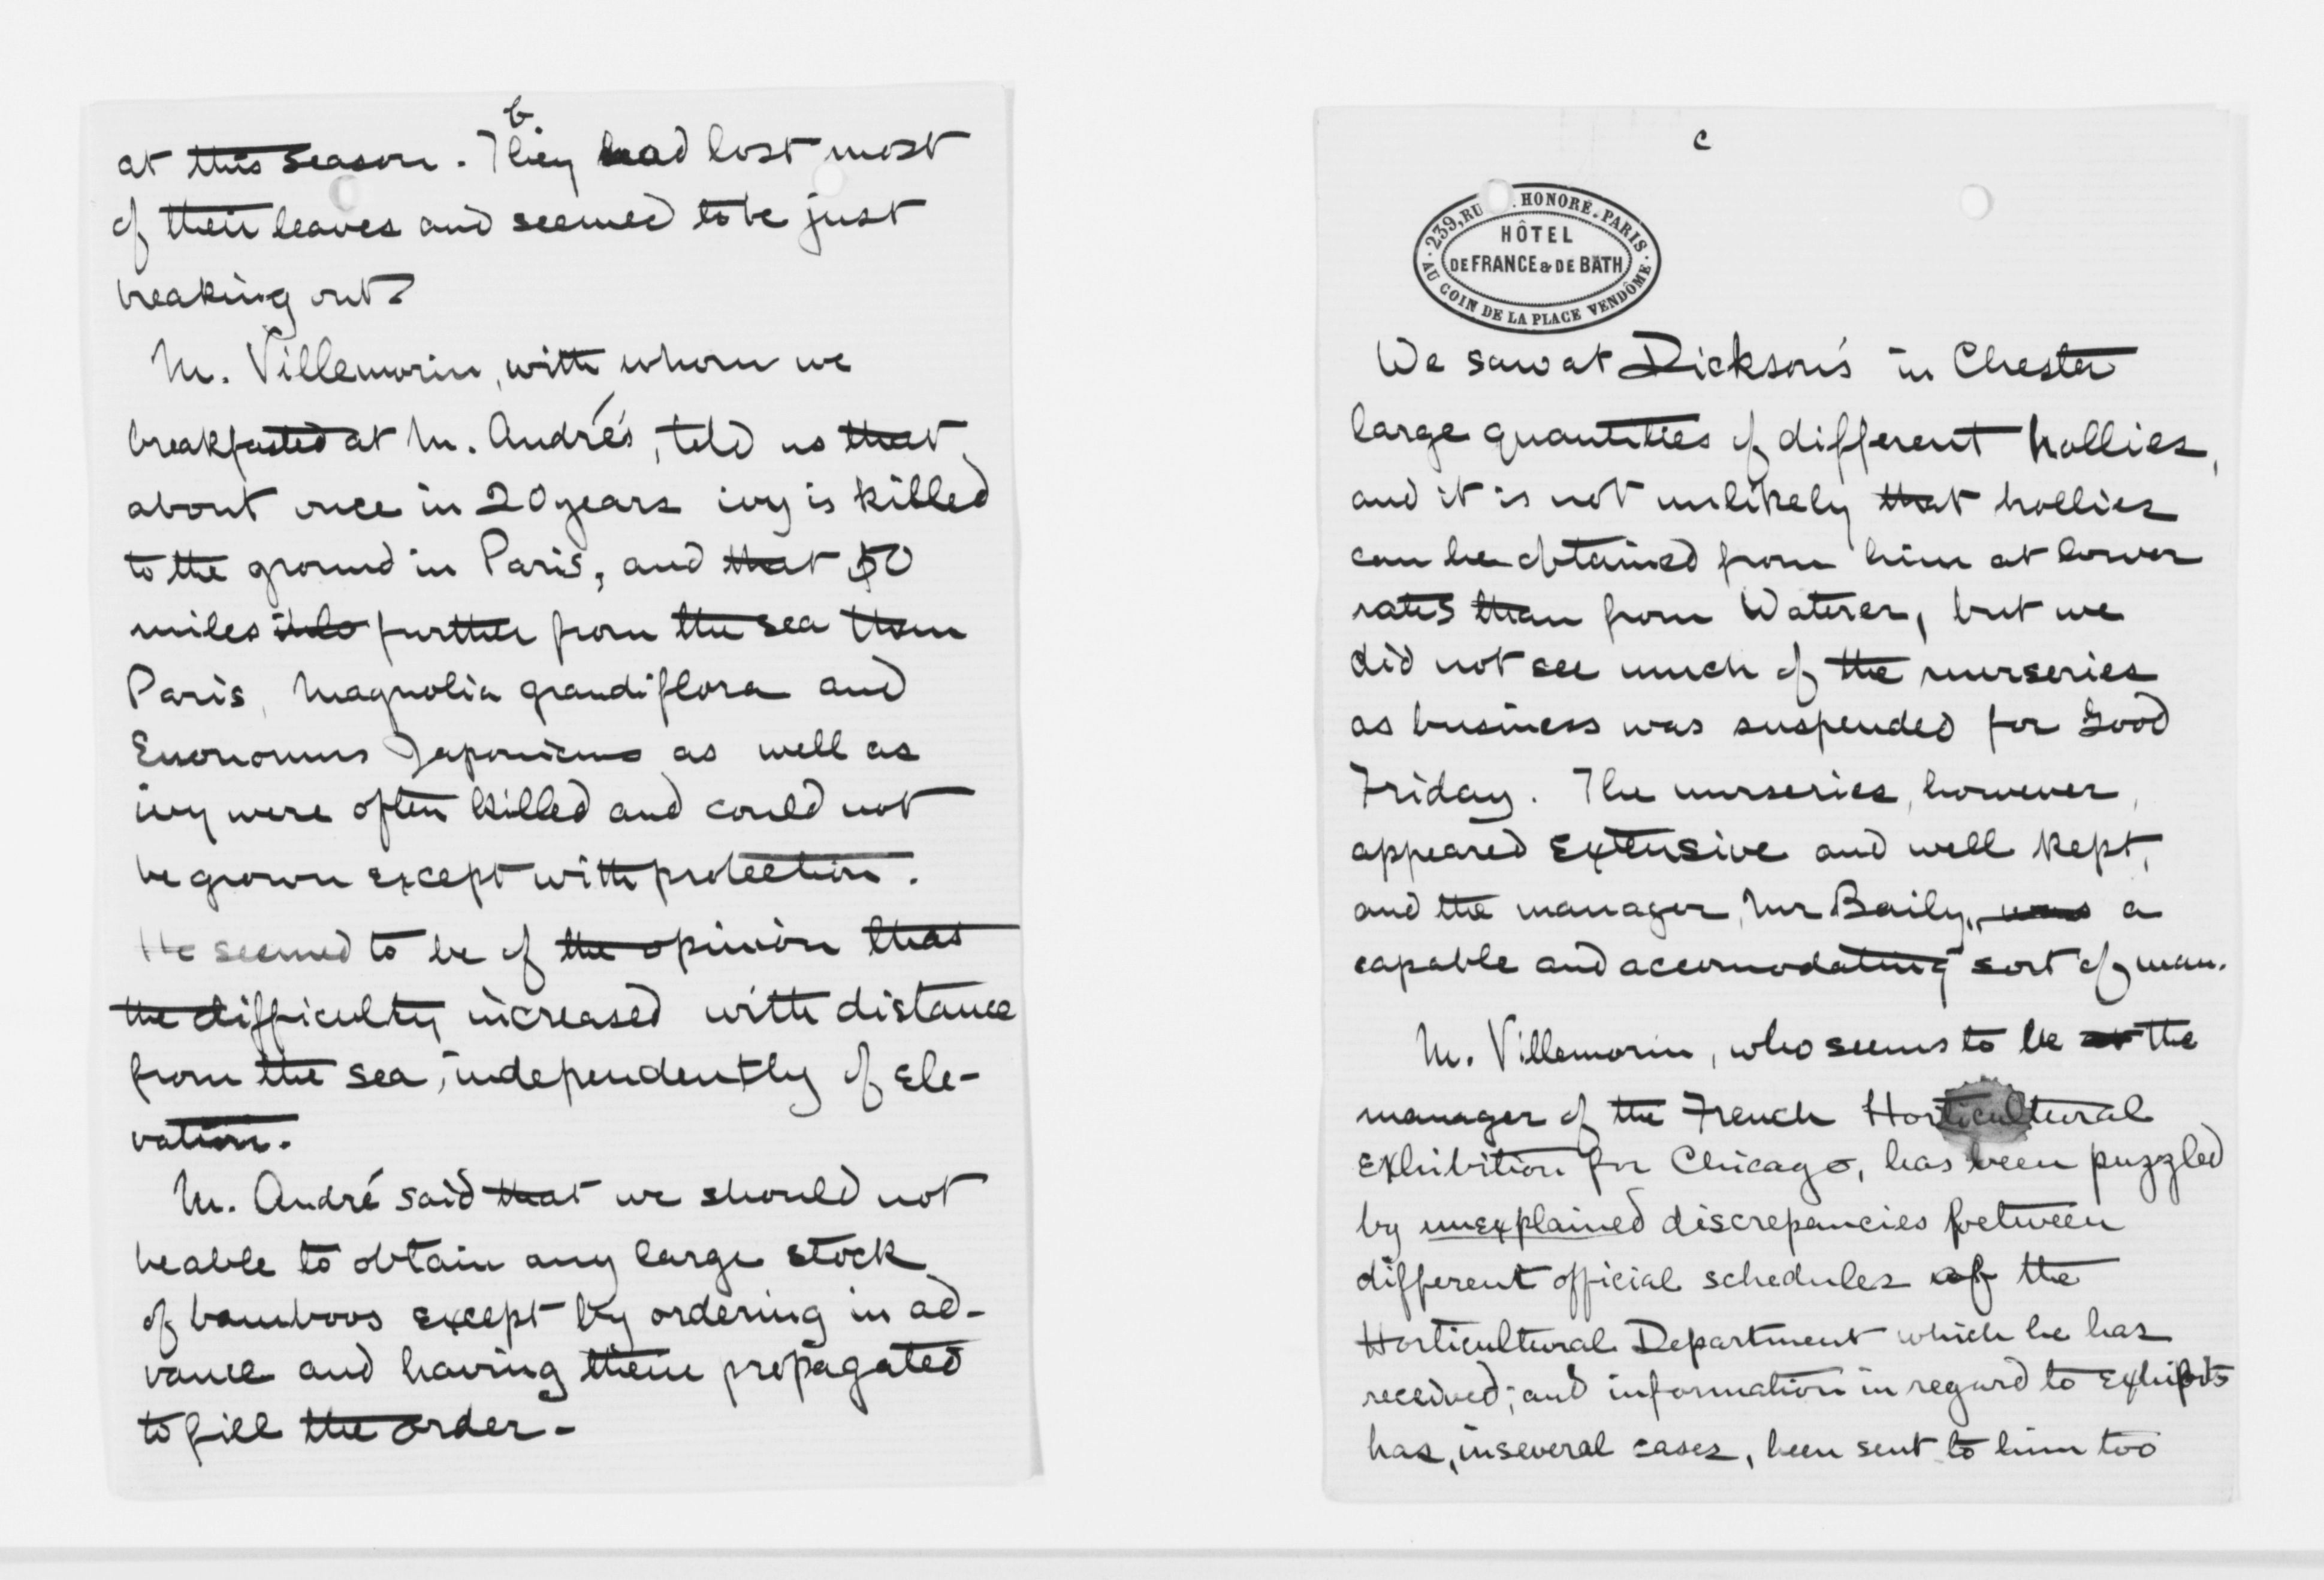 b
at this season. They had lost most
of their leaves and seemed to be just
breaking out.
M. Villemorin, with whom we
breakfasted at M. André's, told us that
about once in 20 years ivy is killed
to the ground in Paris, and that 50
miles further from the sea than
Paris, Magnolia grandiflora and
Euonomus Japonicus as well as
ivy were often killed and could not
be grown except with protection.
He seemed to be of the opinion that
the difficulty increased with distance
from the sea, independently of ele-
vation.
M. André said that we should not
be able to obtain any large stock
of bamboos except by ordering in ad-
vance and having them propagated
to fill the order.
c
239, RU . HONORÉ. PARIS.
HÔTEL
DE FRANCE & DE BATH
AU COIN DE LA PLACE VENDÔME.
We saw at Dickson's in Chester
large quantities of different hollies,
and it is not unlikely that hollies
can be obtained from him at lower
rates than from Waterer, but we
did not see much of the nurseries
as business was suspended for Good
Friday. The nurseries, however,
appeared extensive and well kept,
and the manager, Mr Baily, was a
capable and accomodating sort of man.
M. Villemorin, who seems to be the
manager of the French Horticultural
Exhibition for Chicago, has been puzzled
by unexplained discrepancies between
different official schedules of the
Horticultural Department which he has
received; and information in regard to exhibits
has, in several cases, been sent to him too